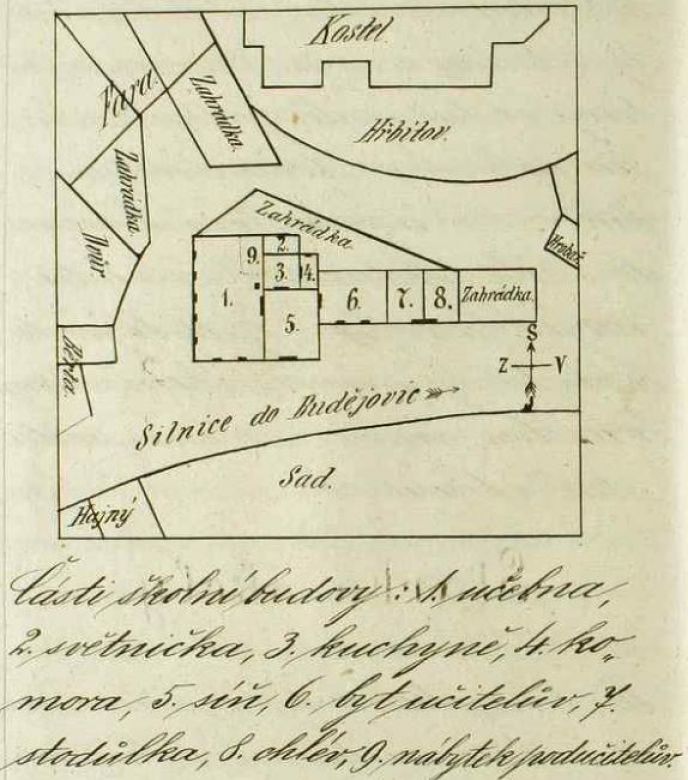 Kostel
Fara.
Zahrádka.
Hřbitov.
Zahrádka.
Zahrádka
Dvůr
9.
2.
3.
4.
1.
5.
6.
7.
8.
Zahrádka.
S
Z
V
Silnice do Budějovic
Sad.
Hajný
Části školní budovy: 1. učebna,
2. světnička, 3. kuchyně, 4. ko„
mora, 5. síň, 6. byt učitelův, 7.
stodůlka, 8. chlév, 9. nábytek podučitelův.